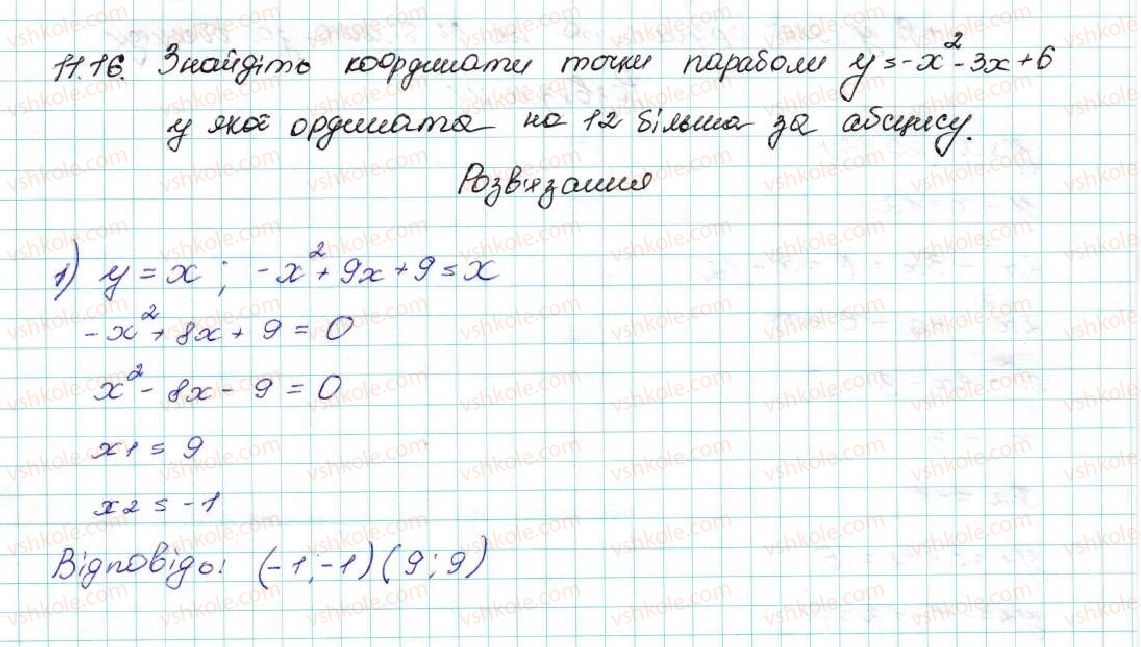 11.16. Знайдіть координати точки параболи y=-x²-3x+6
у якої ордината на 12 більша за абсцису.
Розв'язання
1) y = x ; -x²+9x+9=x
-x²+8x+9=0
x²-8x-9=0
x1=9
x2=-1
Відповідь: (-1;-1)(9;9)
vshkole.com